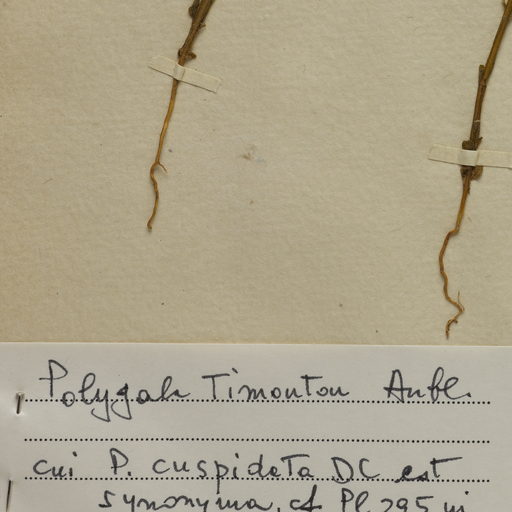 Polygala Timoutou Aubl.
cui P. cuspidata DC est
synonyma, cf Pl 295 in